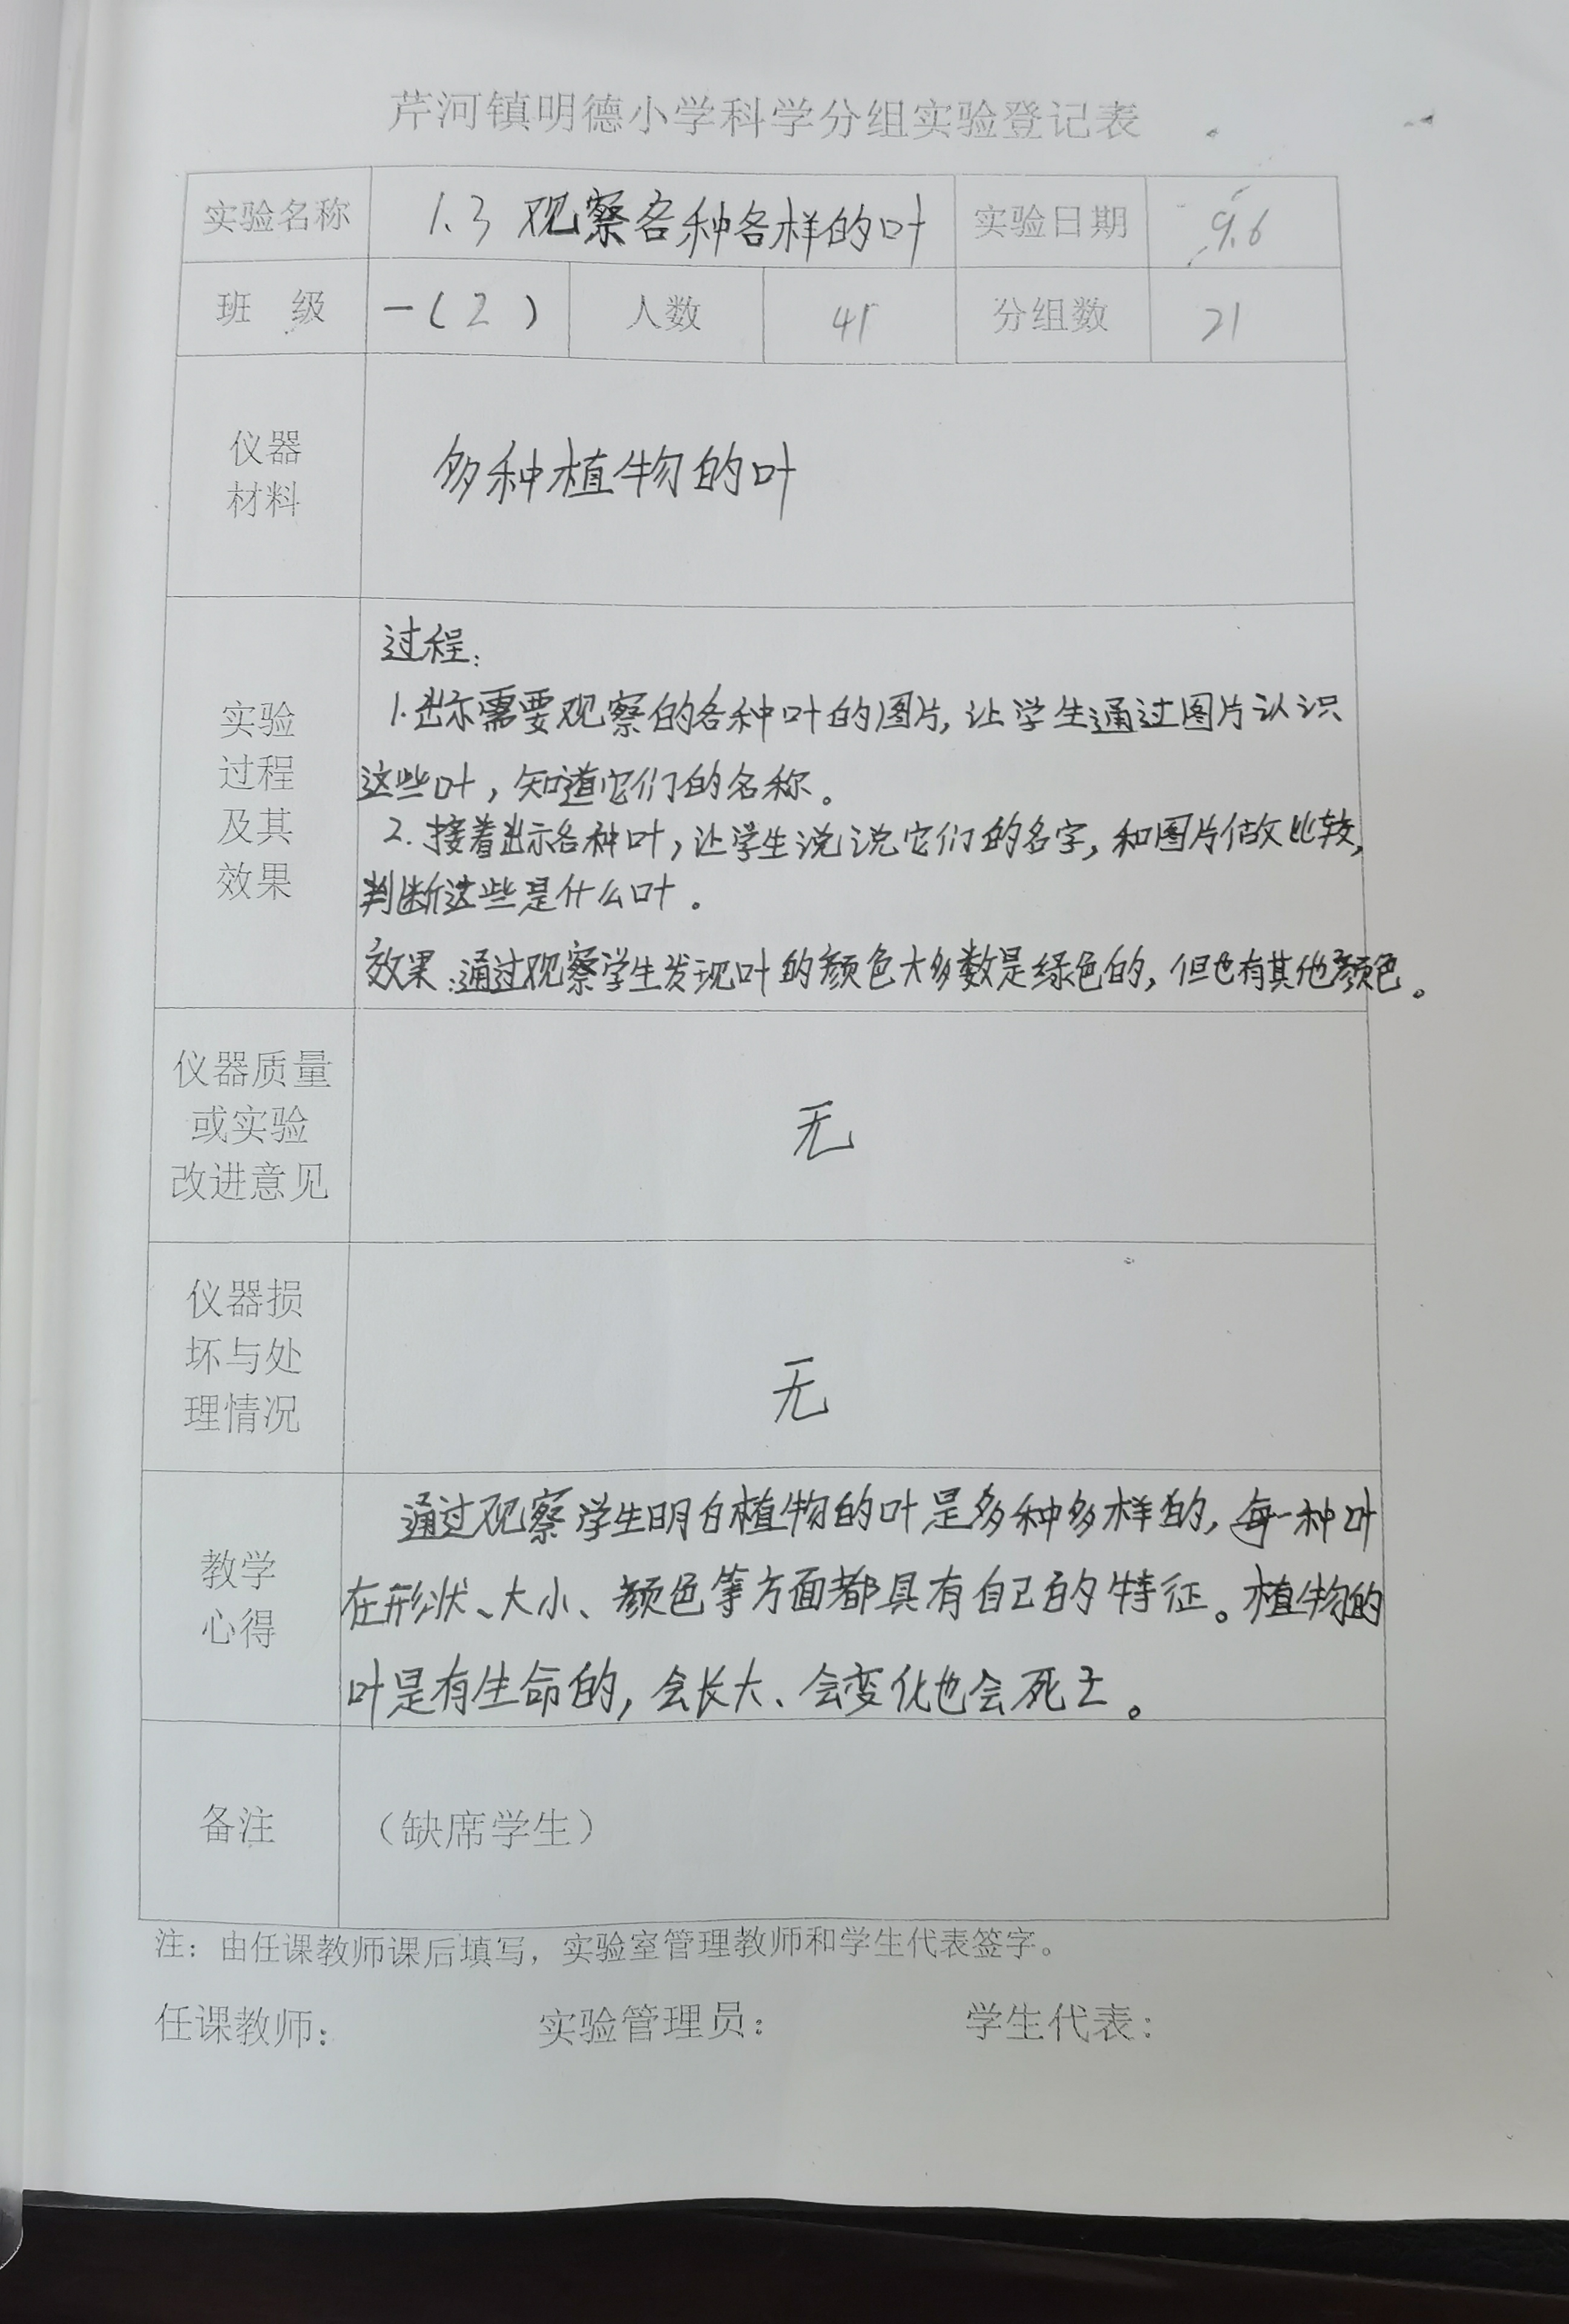 芹河镇明德小学科学分组实验登记表
实验名称 1.3 观察各种各样的叶 实验日期 9.6
班 级 一(2) 人数 分组数 21
仪器
材料
多种植物的叶
实验
过程
及其
效果
过程:
1.出示需要观察的各种叶的图片,让学生通过图片认识
这些叶,知道它们的名称。
2.接着出示各种叶,让学生说说它们的名字,和图片做比较,
判断这些是什么叶。
效果:通过观察学生发现叶的颜色大多数是绿色的,但也有其他颜色。
仪器质量
或实验
改进意见
无
仪器损
坏与处
理情况
无
教学
心得
通过观察学生明白植物的叶是多种多样的,每一种叶
在形状、大小、颜色等方面都具有自己的特征。植物的
叶是有生命的,会长大、会变化也会死亡。
备注
(缺席学生)
注:由任课教师课后填写,实验室管理教师和学生代表签字。
任课教师: 实验管理员: 学生代表: